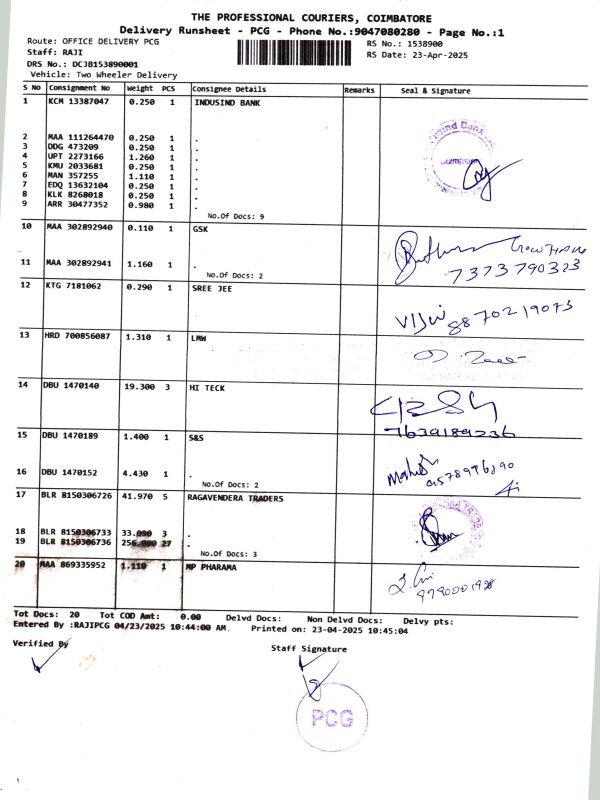 THE PROFESSIONAL COURIERS, COIMBATORE
Delivery Runsheet - PCG - Phone No.:9047080280 - Page No.:1
Route: OFFICE DELIVERY PCG RS No.: 1538900
Staff: RAJI RS Date: 23-Apr-2025
DRS No.: DCJB153890001
Vehicle: Two Wheeler Delivery
S No Consignment No Weight PCS Consignee Details Remarks Seal & Signature
1 KCM 13387047 0.250 1 INDUSIND BANK
2 MAA 111264470 0.250 1 .
3 DDG 473209 0.250 1 .
4 UPT 2273166 1.260 1 .
5 KMU 2033681 0.250 1 .
6 MAN 357255 1.110 1 .
7 EDQ 13632104 0.250 1 .
8 KLK 8268018 0.250 1 .
9 ARR 30477352 0.980 1 .
No.Of Docs: 9
10 MAA 302892940 0.110 1 GSK
11 MAA 302892941 1.160 1 .
7373790323
No.Of Docs: 2
12 KTG 7181062 0.290 1 SREE JEE
8870219073
13 HRD 700856087 1.310 1 LMW
14 DBU 1470140 19.300 3 HI TECK
7639189236
15 DBU 1470189 1.400 1 S&S
16 DBU 1470152 4.430 1 .
No.Of Docs: 2
17 BLR 8150306726 41.970 5 RAGAVENDERA TRADERS
18 BLR 8150306733 33.090 3 .
19 BLR 8150306736 256.000 27 .
No.Of Docs: 3
20 MAA 869335952 1.110 1 MP PHARAMA
Tot Docs: 20 Tot COD Amt: 0.00 Delvd Docs: Non Delvd Docs: Delvy pts:
Entered By :RAJIPCG 04/23/2025 10:44:00 AM Printed on: 23-04-2025 10:45:04
Verified By Staff Signature
PCG